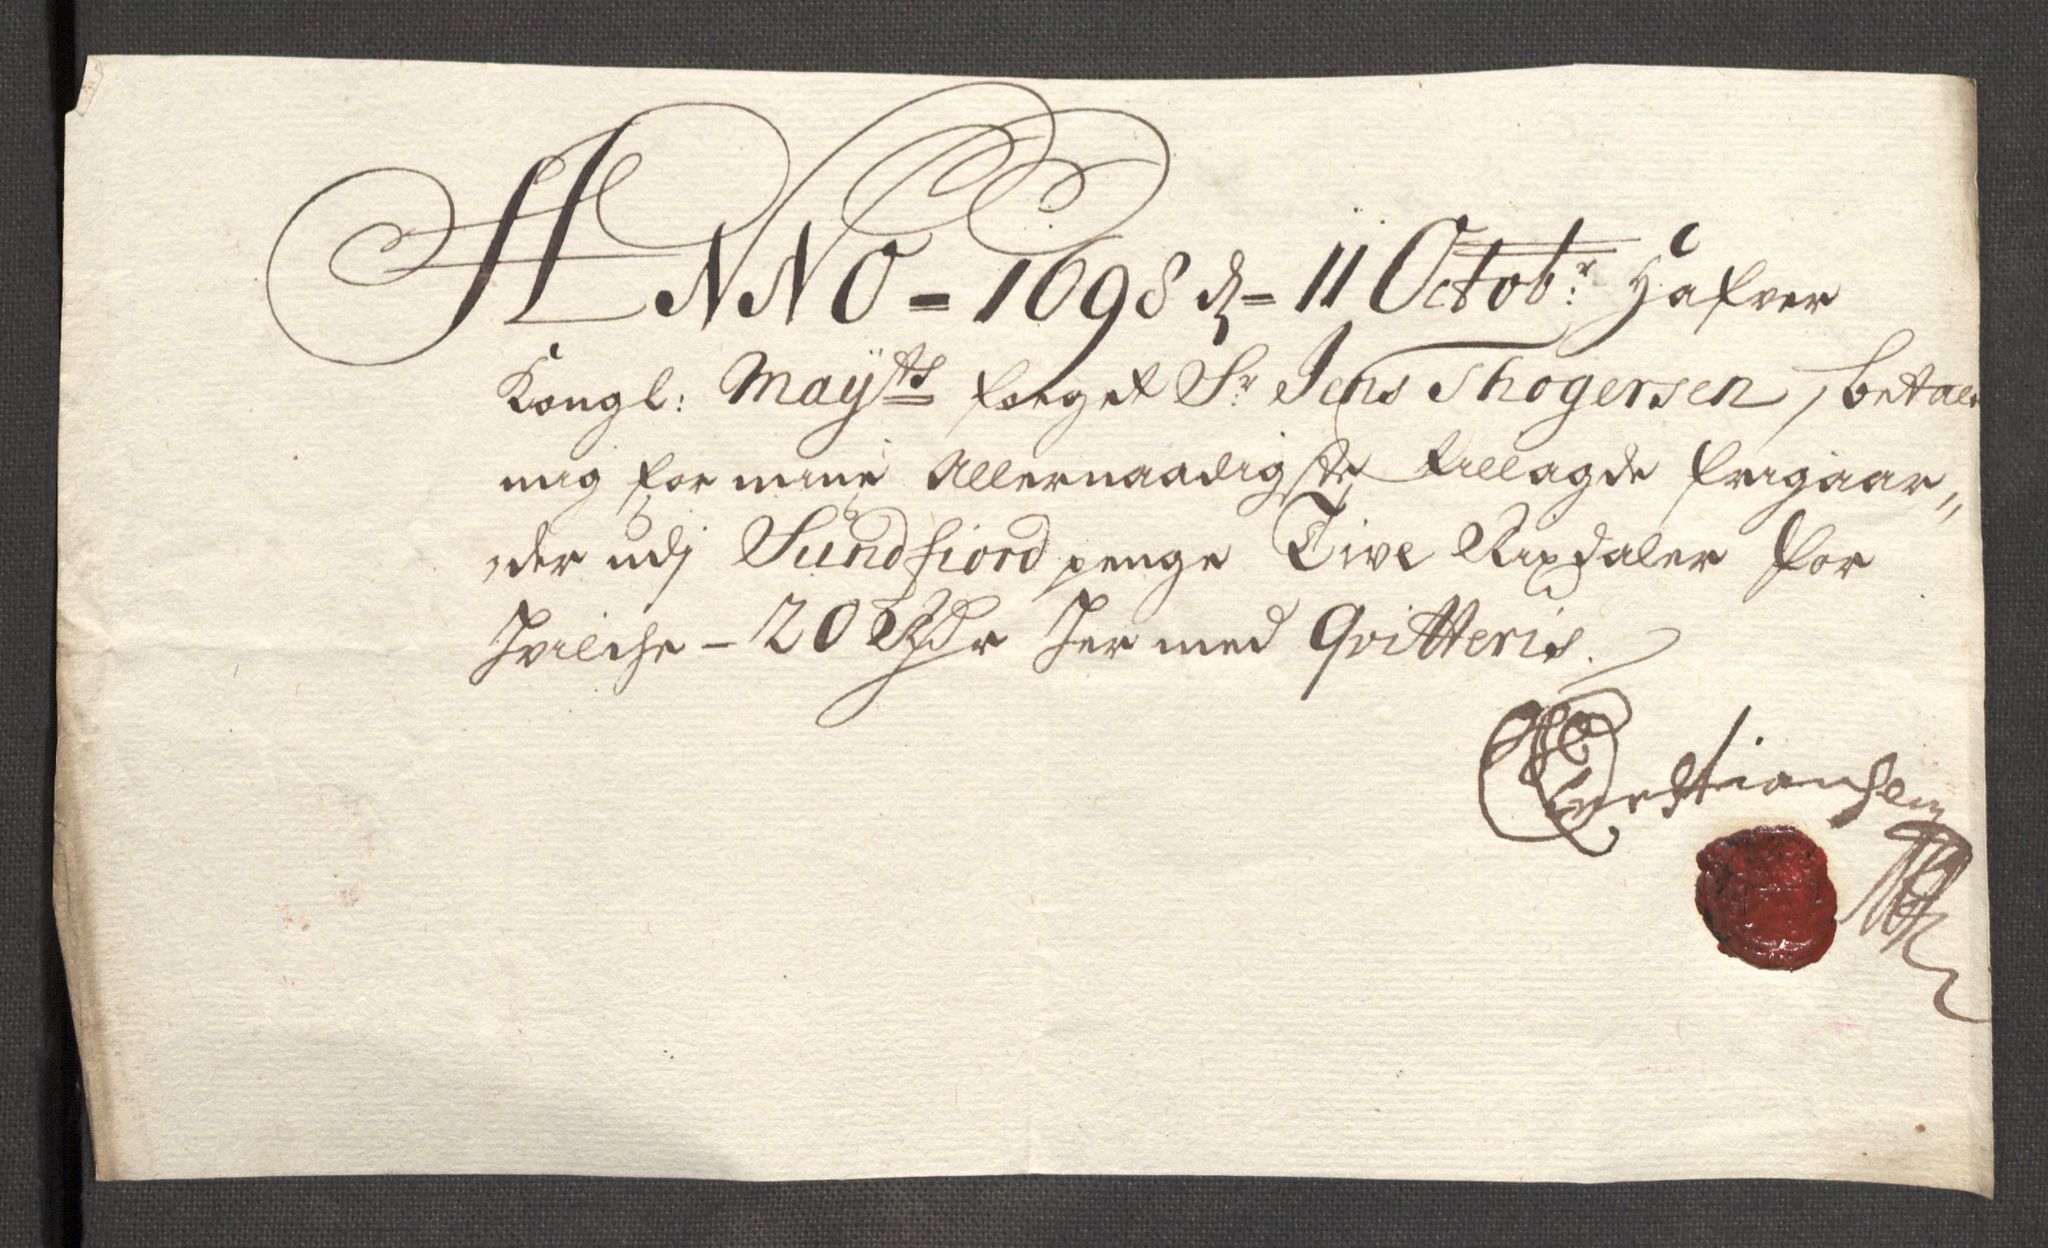 ANNO = 1698 d = 11 Octobr: Hafver
Kongl: Mayts foeget Sr Jens Thogersen, betalt
mig for mine Allernaadigste tillagde frigaar„
der udj Sundfiord penge Tive Rixdaler for
hvilche – 20 Rdr her med Qvitteris.
Christiansen